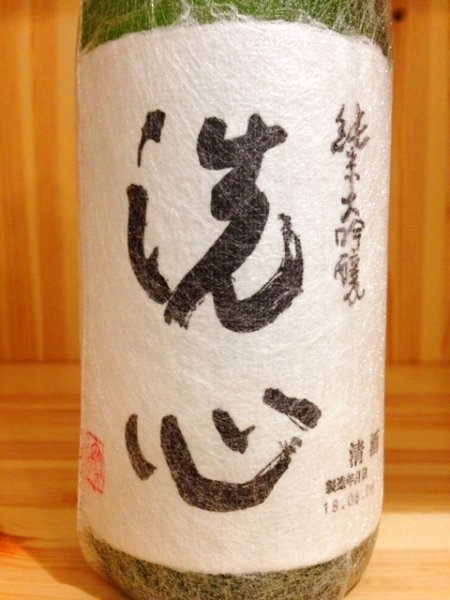 純米大吟醸
洗心
清酒
製造年月
18.06